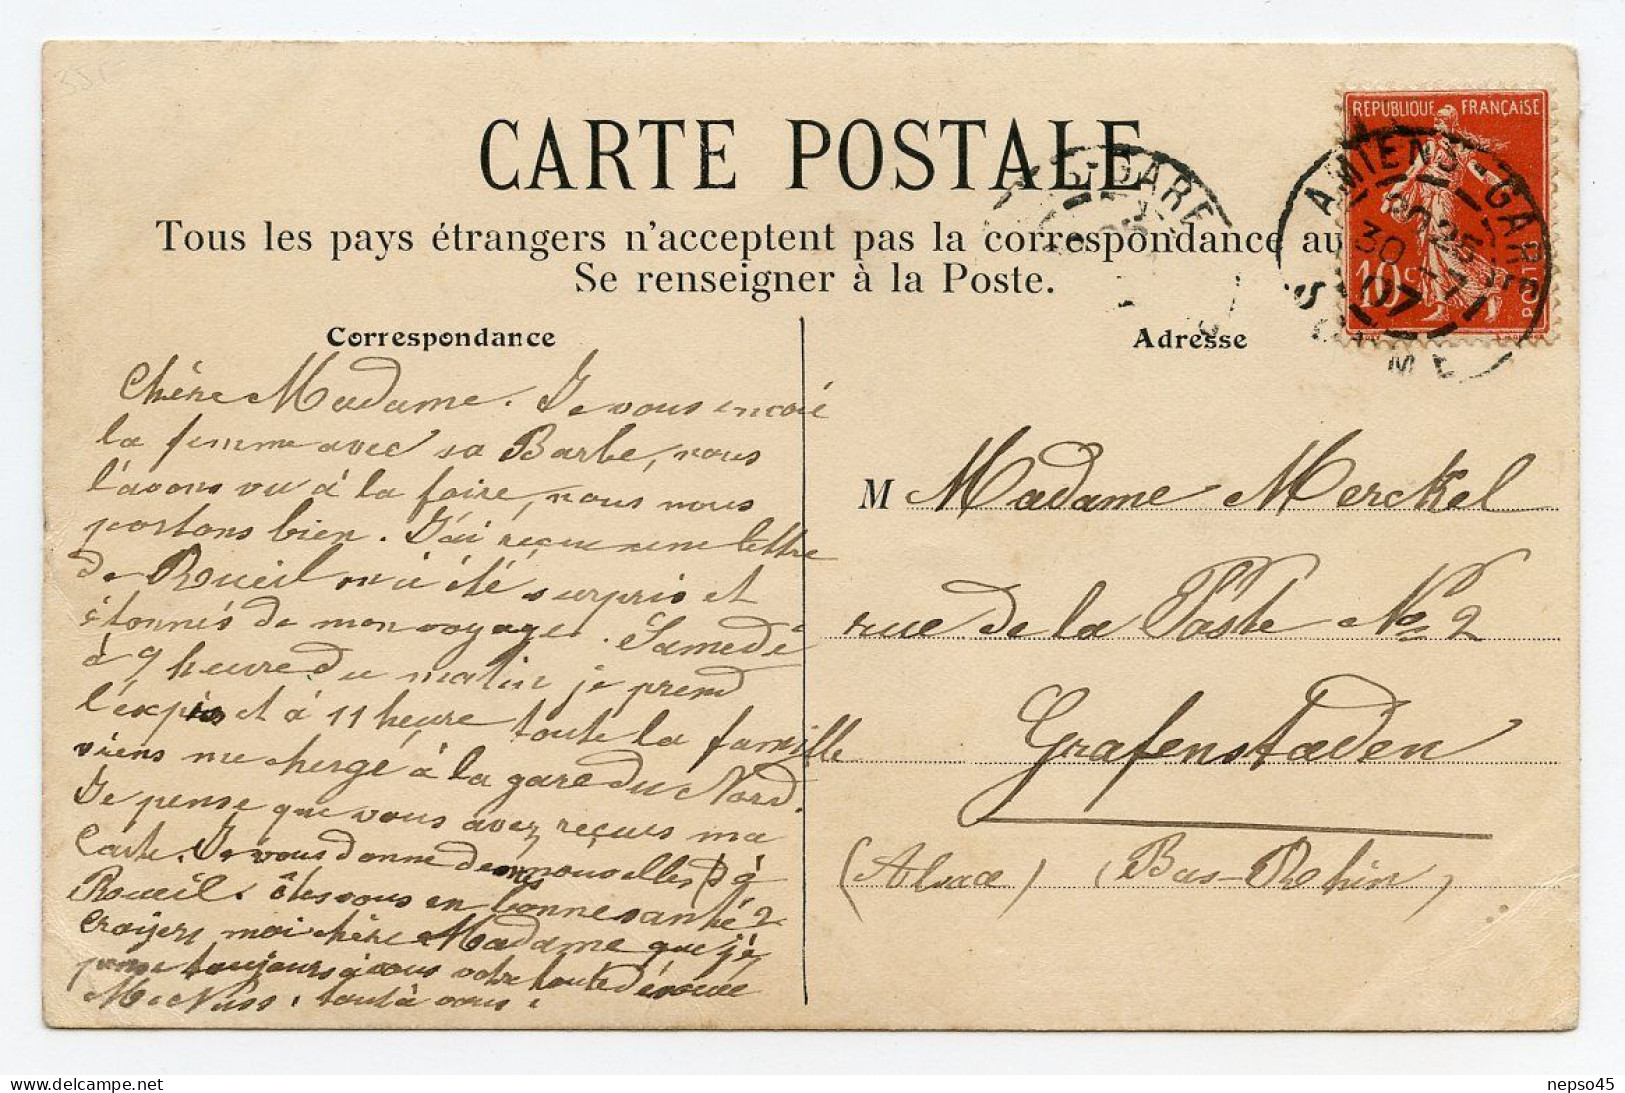 CARTE POSTALE
Tous les pays étrangers n'acceptent pas la correspondance au
Se renseigner à la Poste.
Correspondance
Chère Madame. Je vous envoié
la femme avec sa Barbe, nous
l'avons vu à la foire, nous nous
portons bien. J'ai reçue une lettre
de Rueil on a été surpris et
étonnés de mon voyage. Samedè
à 9 heure du matin je prend
l'expres et à 11 heure toute la famille
viens me chergé à la gare du Nord.
Je pense que vous avez reçues ma
Carte. Je vous donne de nouvelles à
Rueil. êtes vous en bonne santhé ?
Croijers moi chère Madame que je
pense toujours à vous votre toute dévouée
M. Nuss. tout à vous.
Adresse
M Madame Merckel
rue de la Poste No 2
Grafenstaden
(Alsace) (Bas-Rhin)
REPUBLIQUE FRANÇAISE
10c
POSTES
AMIENS-GARE
30
07
GARE
nepso45